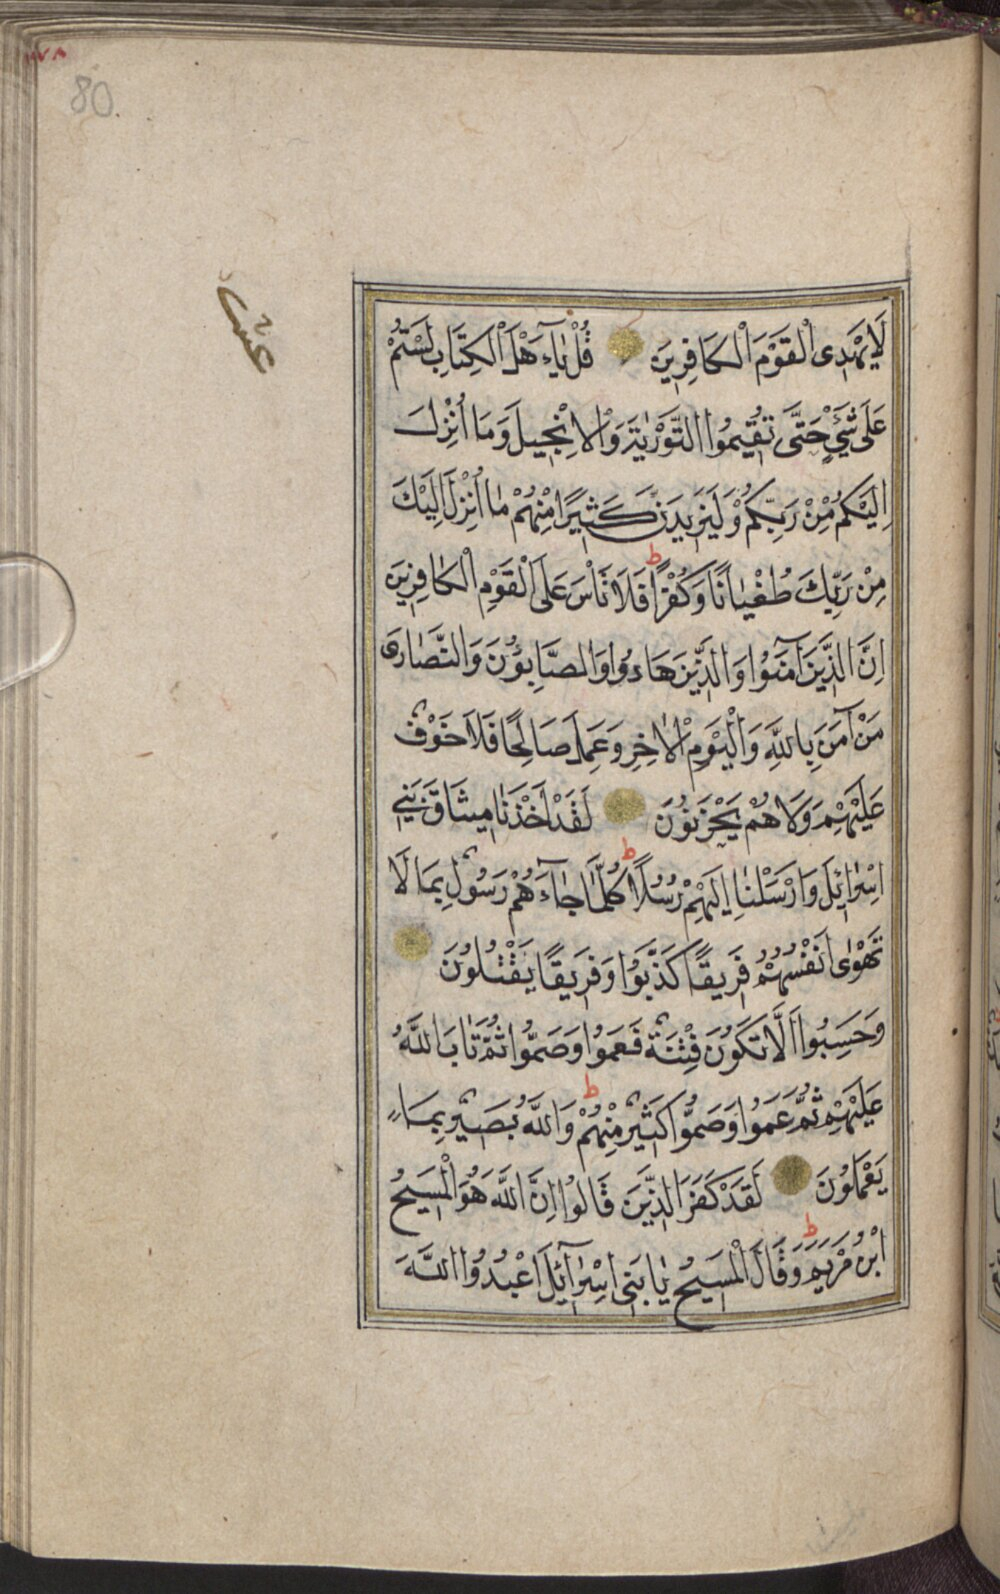 80
عشر
لَا يَهْدِى الْقَوْمَ الْكَافِرِينَ قُلْ يَاءَهْلَ الْكِتَابِ لَسْتُمْ
عَلَى شَيْءٍ حَتَّى تُقِيمُوا التَّوْرٰيةَ وَالْاِنْجِيلَ وَمَا اُنْزِلَ
اِلَيْكُمْ مِنْ رَبِّكُمْ وَلَيَزِيدَنَّ كَثِيرًا مِنْهُمْ مَا اُنْزِلَ اِلَيْكَ
مِنْ رَبِّكَ طُغْيَانًا وَكُفْرًا ط فَلَا تَاْسَ عَلَى الْقَوْمِ الْكَافِرِينَ
اِنَّ الَّذِينَ آمَنُوا وَالَّذِينَ هَادُوا وَالصَّابِؤُنَ وَالنَّصَارَى
مَنْ آمَنَ بِاللَّهِ وَالْيَوْمِ الْاٰخِرِ وَعَمِلَ صَالِحًا فَلَا خَوْفٌ
عَلَيْهِمْ وَلَا هُمْ يَحْزَنُونَ لَقَدْ اَخَذْنَا مِيثَاقَ بَنِي
اِسْرَائِلَ وَاَرْسَلْنَا اِلَيْهِمْ رُسُلًا ط كُلَّمَا جَاءَهُمْ رَسُولٌ بِمَا لَا
تَهْوٰى اَنْفُسُهُمْ فَرِيقًا كَذَّبُوا وَفَرِيقًا يَقْتُلُونَ
وَحَسِبُوا اَلَّا تَكُونَ فِتْنَةٌ فَعَمُوا وَصَمُّوا ثُمَّ تَابَ اللَّهُ
عَلَيْهِمْ ثُمَّ عَمُوا وَصَمُّوا كَثِيرٌ مِنْهُمْ ط وَاللَّهُ بَصِيرٌ بِمَا
يَعْمَلُونَ لَقَدْ كَفَرَ الَّذِينَ قَالُوا اِنَّ اللَّهَ هُوَ الْمَسِيحُ
ابْنُ مَرْيَمَ ط وَقَالَ الْمَسِيحُ يَا بَنِى اِسْرَآئِلَ اعْبُدُوا اللَّهَ